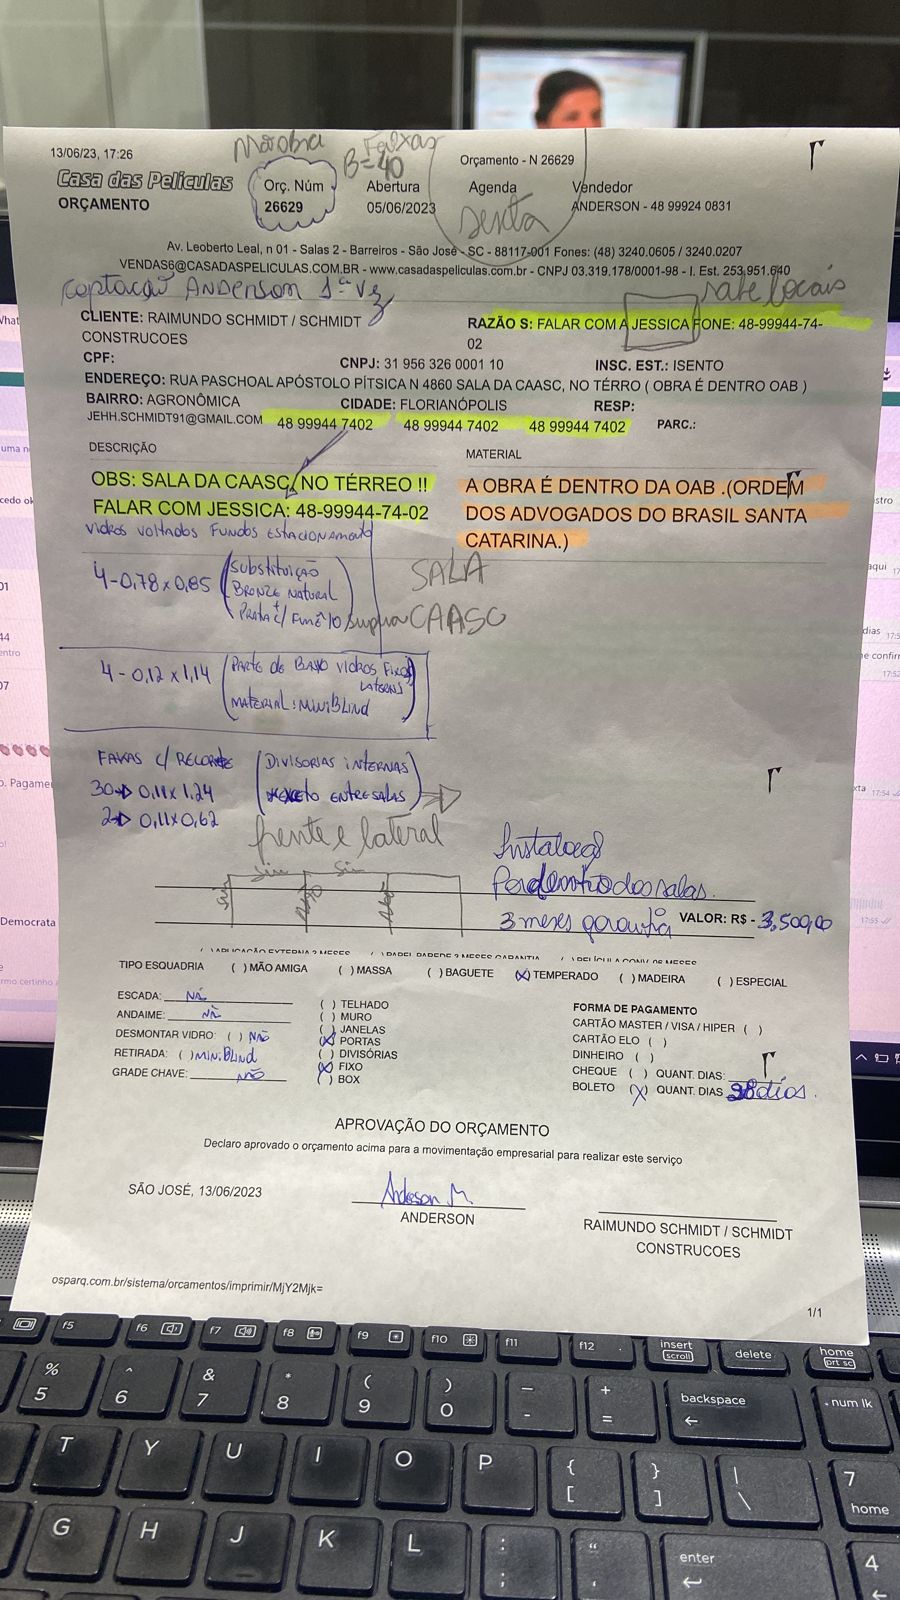 13/06/23, 17:26
Faixas
B=40
Casa das Películas
ORÇAMENTO
Orç. Núm
26629
Abertura
05/06/2023
Orçamento - N 26629
Agenda
sexta
Vendedor
ANDERSON - 48 99924 0831
Av. Leoberto Leal, n 01 - Salas 2 - Barreiros - São José - SC - 88117-001 Fones: (48) 3240.0605 / 3240.0207
VENDAS6@CASADASPELICULAS.COM.BR - www.casadaspeliculas.com.br - CNPJ 03.319.178/0001-98 - I. Est. 253.951.640
captação ANDERSON 1ª Vez
sabe locais
CLIENTE: RAIMUNDO SCHMIDT / SCHMIDT
CONSTRUCOES
RAZÃO S: FALAR COM A JESSICA FONE: 48-99944-74-
02
CPF:
CNPJ: 31 956 326 0001 10
INSC. EST.: ISENTO
ENDEREÇO: RUA PASCHOAL APÓSTOLO PÍTSICA N 4860 SALA DA CAASC, NO TÉRRO ( OBRA É DENTRO OAB )
BAIRRO: AGRONÔMICA
CIDADE: FLORIANÓPOLIS
RESP:
JEHH.SCHMIDT91@GMAIL.COM 48 99944 7402 48 99944 7402 48 99944 7402 PARC.:
DESCRIÇÃO
MATERIAL
OBS: SALA DA CAASC, NO TÉRREO !!
FALAR COM JESSICA: 48-99944-74-02
A OBRA É DENTRO DA OAB .(ORDEM
DOS ADVOGADOS DO BRASIL SANTA
CATARINA.)
VIDROS VOLTADOS FUNDOS ESTACIONAMENTO
4-0,78x0,85 (SUBSTITUIÇÃO
BRONZE NATURAL
+
PRATA c/ FUMÊ 10
SALA
CAASC
4-0,12x1,14 (PARTE DE BAIXO VIDROS FIXOS
LATERAIS
MATERIAL: MINIBLIND)
FAIXAS c/ RECORTE (DIVISÓRIAS INTERNAS
EXCETO ENTRE SALAS)
30→ 0,11x1,24
2→ 0,11x0,62
frente e lateral
Sim Sim
Instalação
Por dentro das salas.
3 meses garantia
VALOR: R$ - 3,500,00
( )APLICAÇÃO EXTERNA 3 MESES ( )PAPEL PAREDE 3 MESES GARANTIA ( )PELÍCULA CONV. 06 MESES
TIPO ESQUADRIA ( ) MÃO AMIGA ( ) MASSA ( ) BAGUETE (X) TEMPERADO ( ) MADEIRA ( ) ESPECIAL
ESCADA: NÃ
ANDAIME: NÃ
DESMONTAR VIDRO: ( ) NÃO
RETIRADA: ( ) MINIBLIND
GRADE CHAVE: NÃO
( ) TELHADO
( ) MURO
( ) JANELAS
(X) PORTAS
( ) DIVISÓRIAS
(X) FIXO
( ) BOX
FORMA DE PAGAMENTO
CARTÃO MASTER / VISA / HIPER ( )
CARTÃO ELO ( )
DINHEIRO ( )
CHEQUE ( ) QUANT. DIAS:
BOLETO (X) QUANT. DIAS 28 dias.
APROVAÇÃO DO ORÇAMENTO
Declaro aprovado o orçamento acima para a movimentação empresarial para realizar este serviço
SÃO JOSÉ, 13/06/2023
Anderson M.
ANDERSON
RAIMUNDO SCHMIDT / SCHMIDT
CONSTRUCOES
osparq.com.br/sistema/orcamentos/imprimir/MjY2Mjk=
1/1
f5 f6 f7 f8 f9 f10 f11 f12 insert delete home
scroll prt sc
% ^ & * ( ) _ + backspace num lk
5 6 7 8 9 0 - = ←
T Y U I O P { } | 7
[ ] \ home
G H J K L : " enter 4
; ' ←